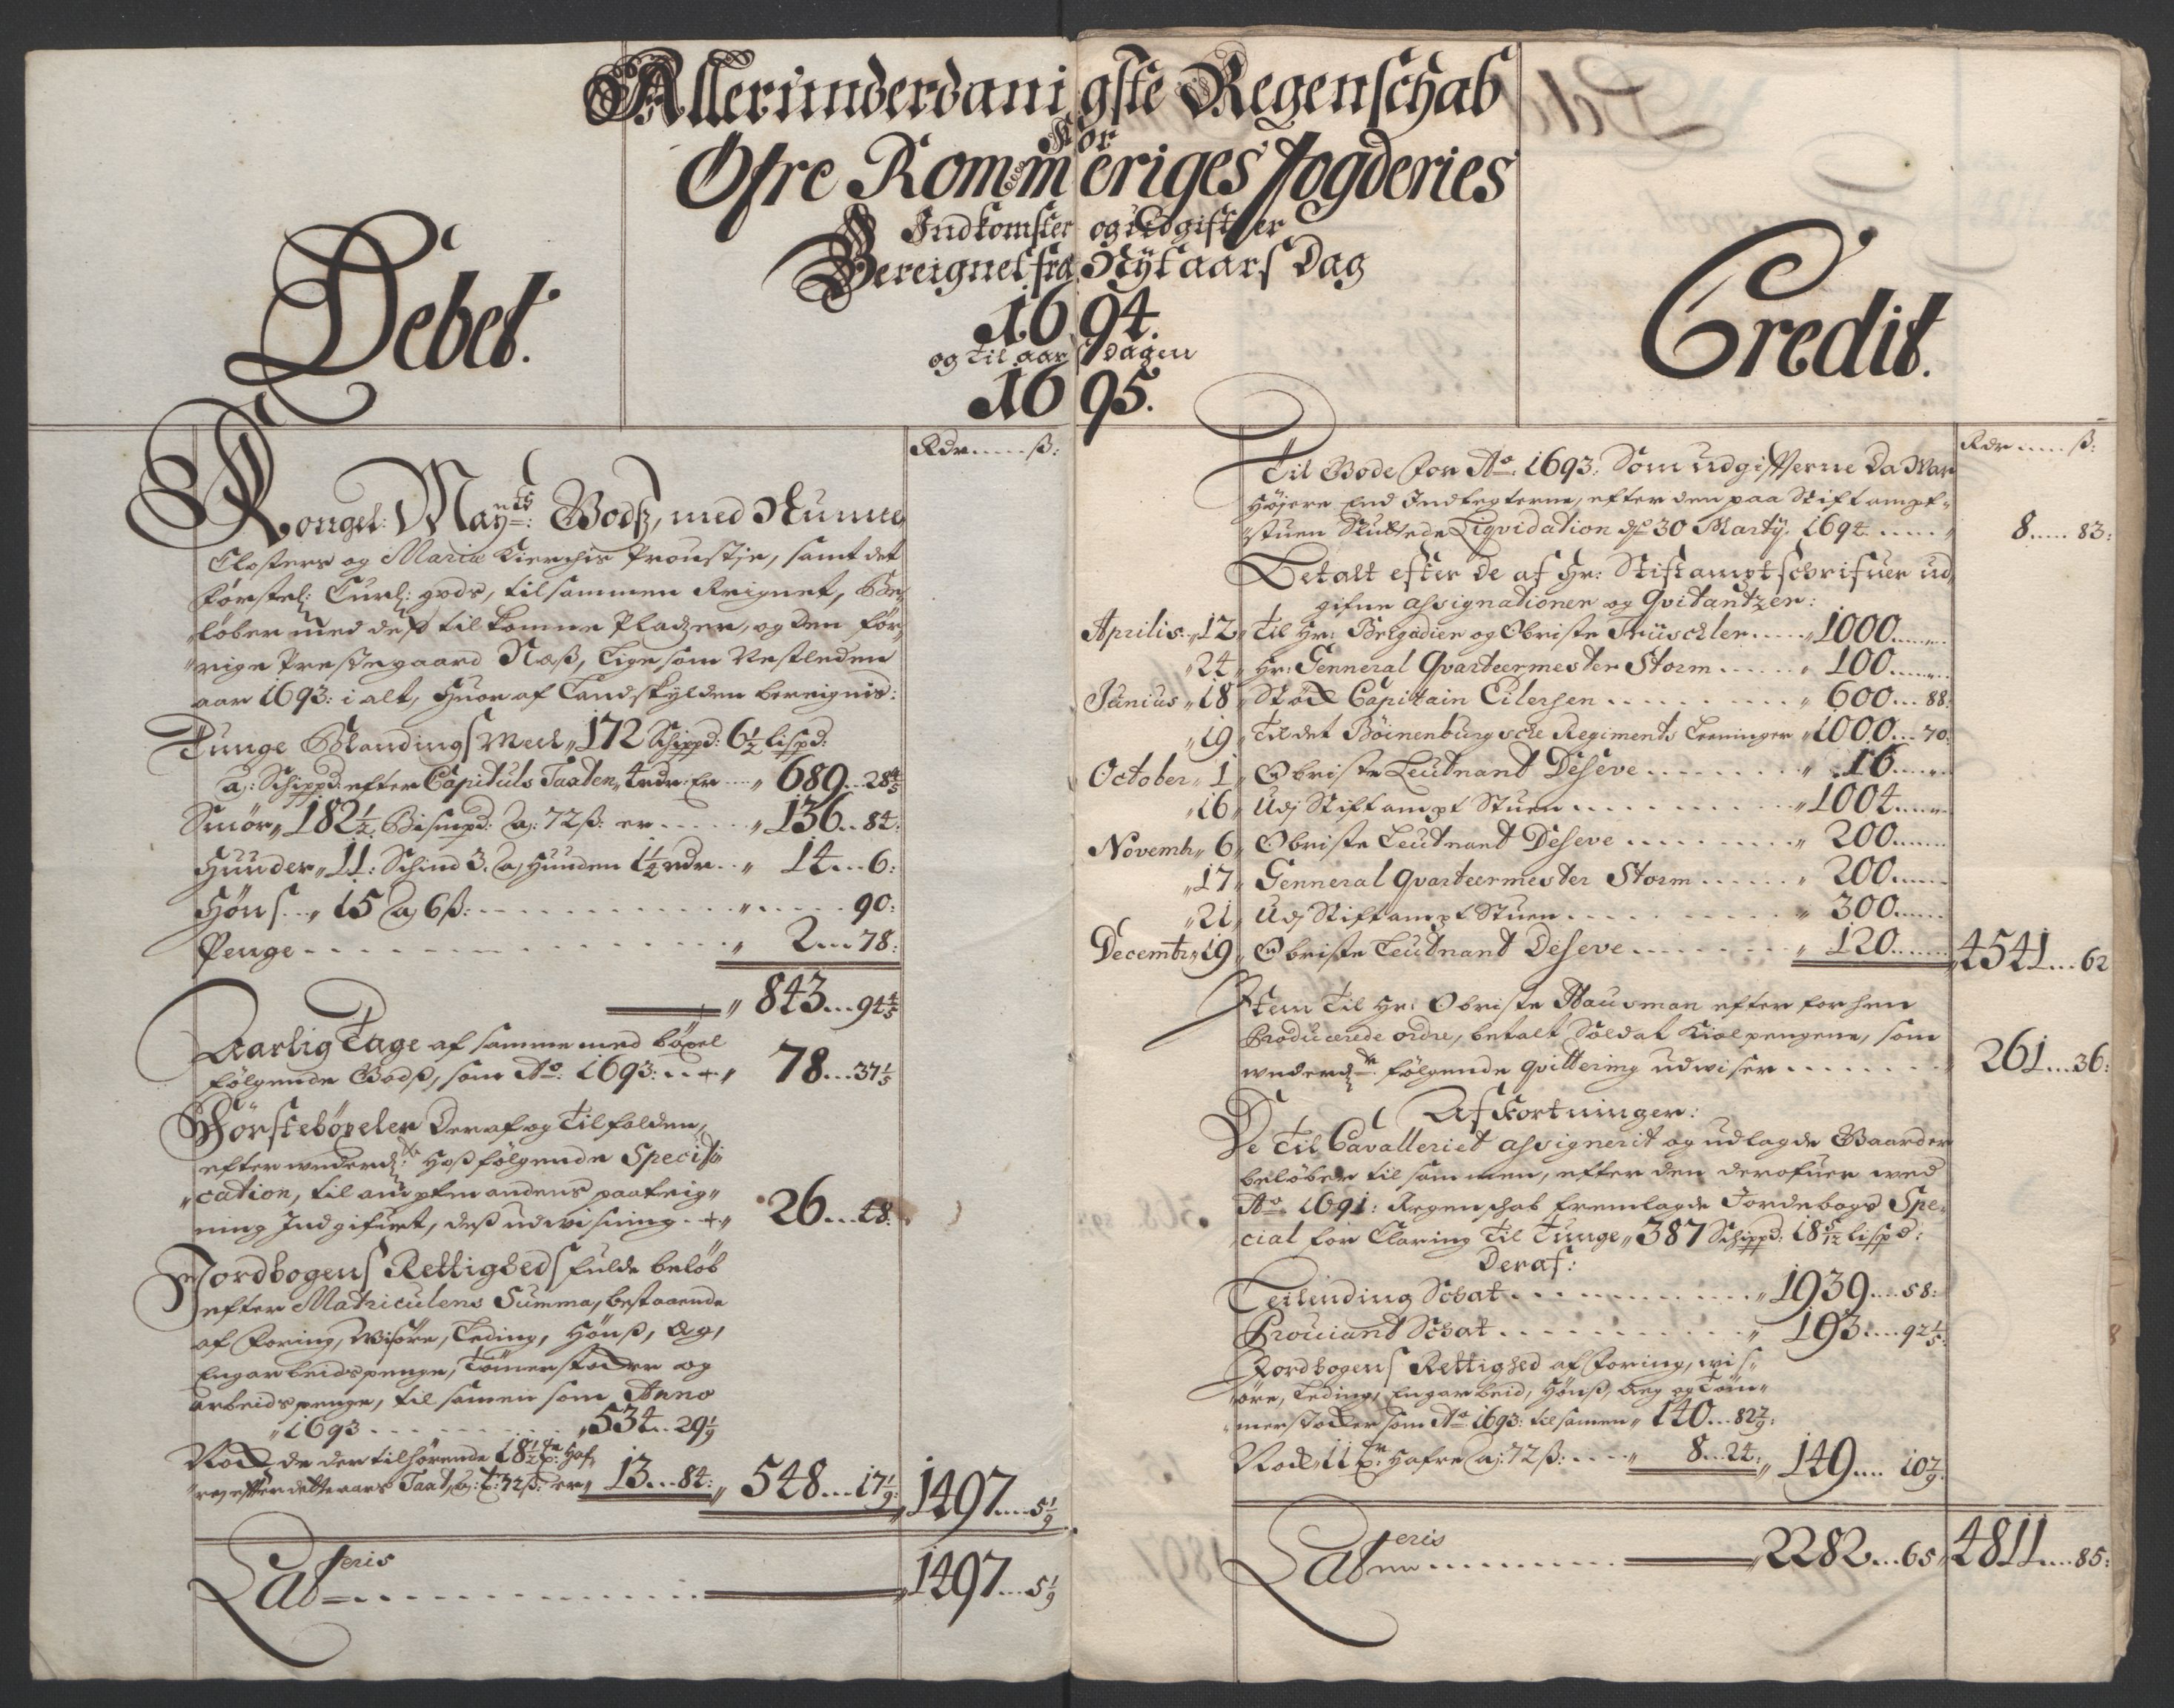 Allerunderdanigste Regenschab
For
Øfre Rommeriges Fogderies
Indkomster og Udgifter
Bereignet fra Nÿtaars Dag
1694.
og til aars dagen
1695.
Debet.
Rdr ..... ß:
Kongel: Maytts: Godß, med Nunne
Closters og Mariæ Kierchis Proustje, samt det
førstel: Curl: gods, tilsammen Reignet, Be„
løber med deß tilkomne Pladzer, og den för„
rige Prestegaard Næß, Lige som Nestleden
aar 1693: i alt, Huor af Landskylden bereignis:
Tunge Blandings Meel „ 172 Schippd: 6½ lispd:
a: Schippd: efter Capituls Taxten, 4 rdr: Er ... „ 689 .. 28⅘
Smör „ 182½ Bismpd: a: 72 ß: er ..... „ 136 .. 84:
Huuder „ 11: Schind 3. a, Huuden 1½ rdr .. „ 14 ... 6:
Höns .. „ 15 a, 6 ß: ......... „ ..... 90:
Penge ......... „ 2 ... 78:
„ 843 ... 94⅘
Aarlig Tage af samme med böxel
følgende Godß, som Ao: 1693: .. + „ 78 ... 37⅕
Förstebøxeler Deraf og Tilfalden,
efter underd: Hoß følgende Specifi„
„cation, til amptmandens paateig„
ning Indgifuet, deß udwisning . + „ 26 ... 48:
Jordbogens Rettigheds fulde beløb
efter Matriculens Summa, bestaaende
af Foring, Wisöre, Leding, Hönß, Æg,
Engarbeidspenge, Tömerstocker og
arbeidspenge, til samen som Anno
„1693 ......... „ 534 .. 29⅑
Nock de der tilhørende 18½ tr: Haf„
„re, efter dette aars Taxt, a: t: 72 ß: er „ 13 ... 84: „ 548 ... 17⅑: „ 1497 .... 5⅑
Lateris ......... „ 1497 .... 5⅑
Credit.
Rdr ..... ß:
Til Gode for Ao: 1693: Som udgifterne da War
Höjere End Indtegterne, efter den paa Stiftampt„
„stuen Sluttede Liqvidation dß 30 Martÿ. 1694 ..... „ 8 ..... 83:
Betalt efter de af Hr: Stiftamptschrifuer ud„
gifne assignationer og Qvitantzer:
Aprilis „ 12 „ Til Hr: Brigadier og Obriste Trüschler ..... „ 1000 ......
„ 24 „ Hr: Genneral Qvarteermester Storm ..... „ 100 ......
Junius „ 18 „ Nock Capitain Eilersen ......... „ 600 ... 88:
„ 19 „ Til det Böinenburgsche Regiments Leeninger „ 1000 ... 70:
October „ 1 „ Obriste Leutnant Deseve ......... „ 16 ......
„ 16 „ Udj Stiftampt Stuen ......... „ 1004 ......
Novemb „ 6 „ Obriste Leutnant Deseve ......... „ 200 ......
„ 17 „ Genneral Qvarteermester Storm ...... „ 200 ......
„ 21 „ Udj Stiftampt Stuen ......... „ 300 ......
Decembr „ 19 „ Obriste Leutnant Deseve ......... „ 120 ...... „ 4541 ... 62
Item Til Hr: Obriste Hausman efter forhen
Producerede ordre, betalt Soldat Kiolpengene, som
underd: følgende qvittering udwiser ......... „ 261 ... 36:
Afkortninger:
De Til Cavalleriet assignerit og udlagde Gaarder
beløber til sammen, efter den derofuer wed
Ao: 1691: Regenschab fremlagde Jordebogs Spe„
cial for Claring Til Tunge „ 387 Schippd: 18 5/12 lispd:
Deraf:
Leilending Schat ......... „ 1939 .... 58:
Prouiant Schat ......... „ 193 .... 92⅕:
Jordbogens Rettighed af Foring, wis„
öre, Leding, Engarbeid, Hönß, Æg og Töm„
„merstocker som Ao: 1693: tilsamen „ 140 ... 82 7/9:
Nock 11 tr: Hafre a: 72 ß: .... „ 8 ... 24: „ 149 .... 10 7/9:
Lateris ......... „ 2282 ... 65 „ 4811 .... 85: